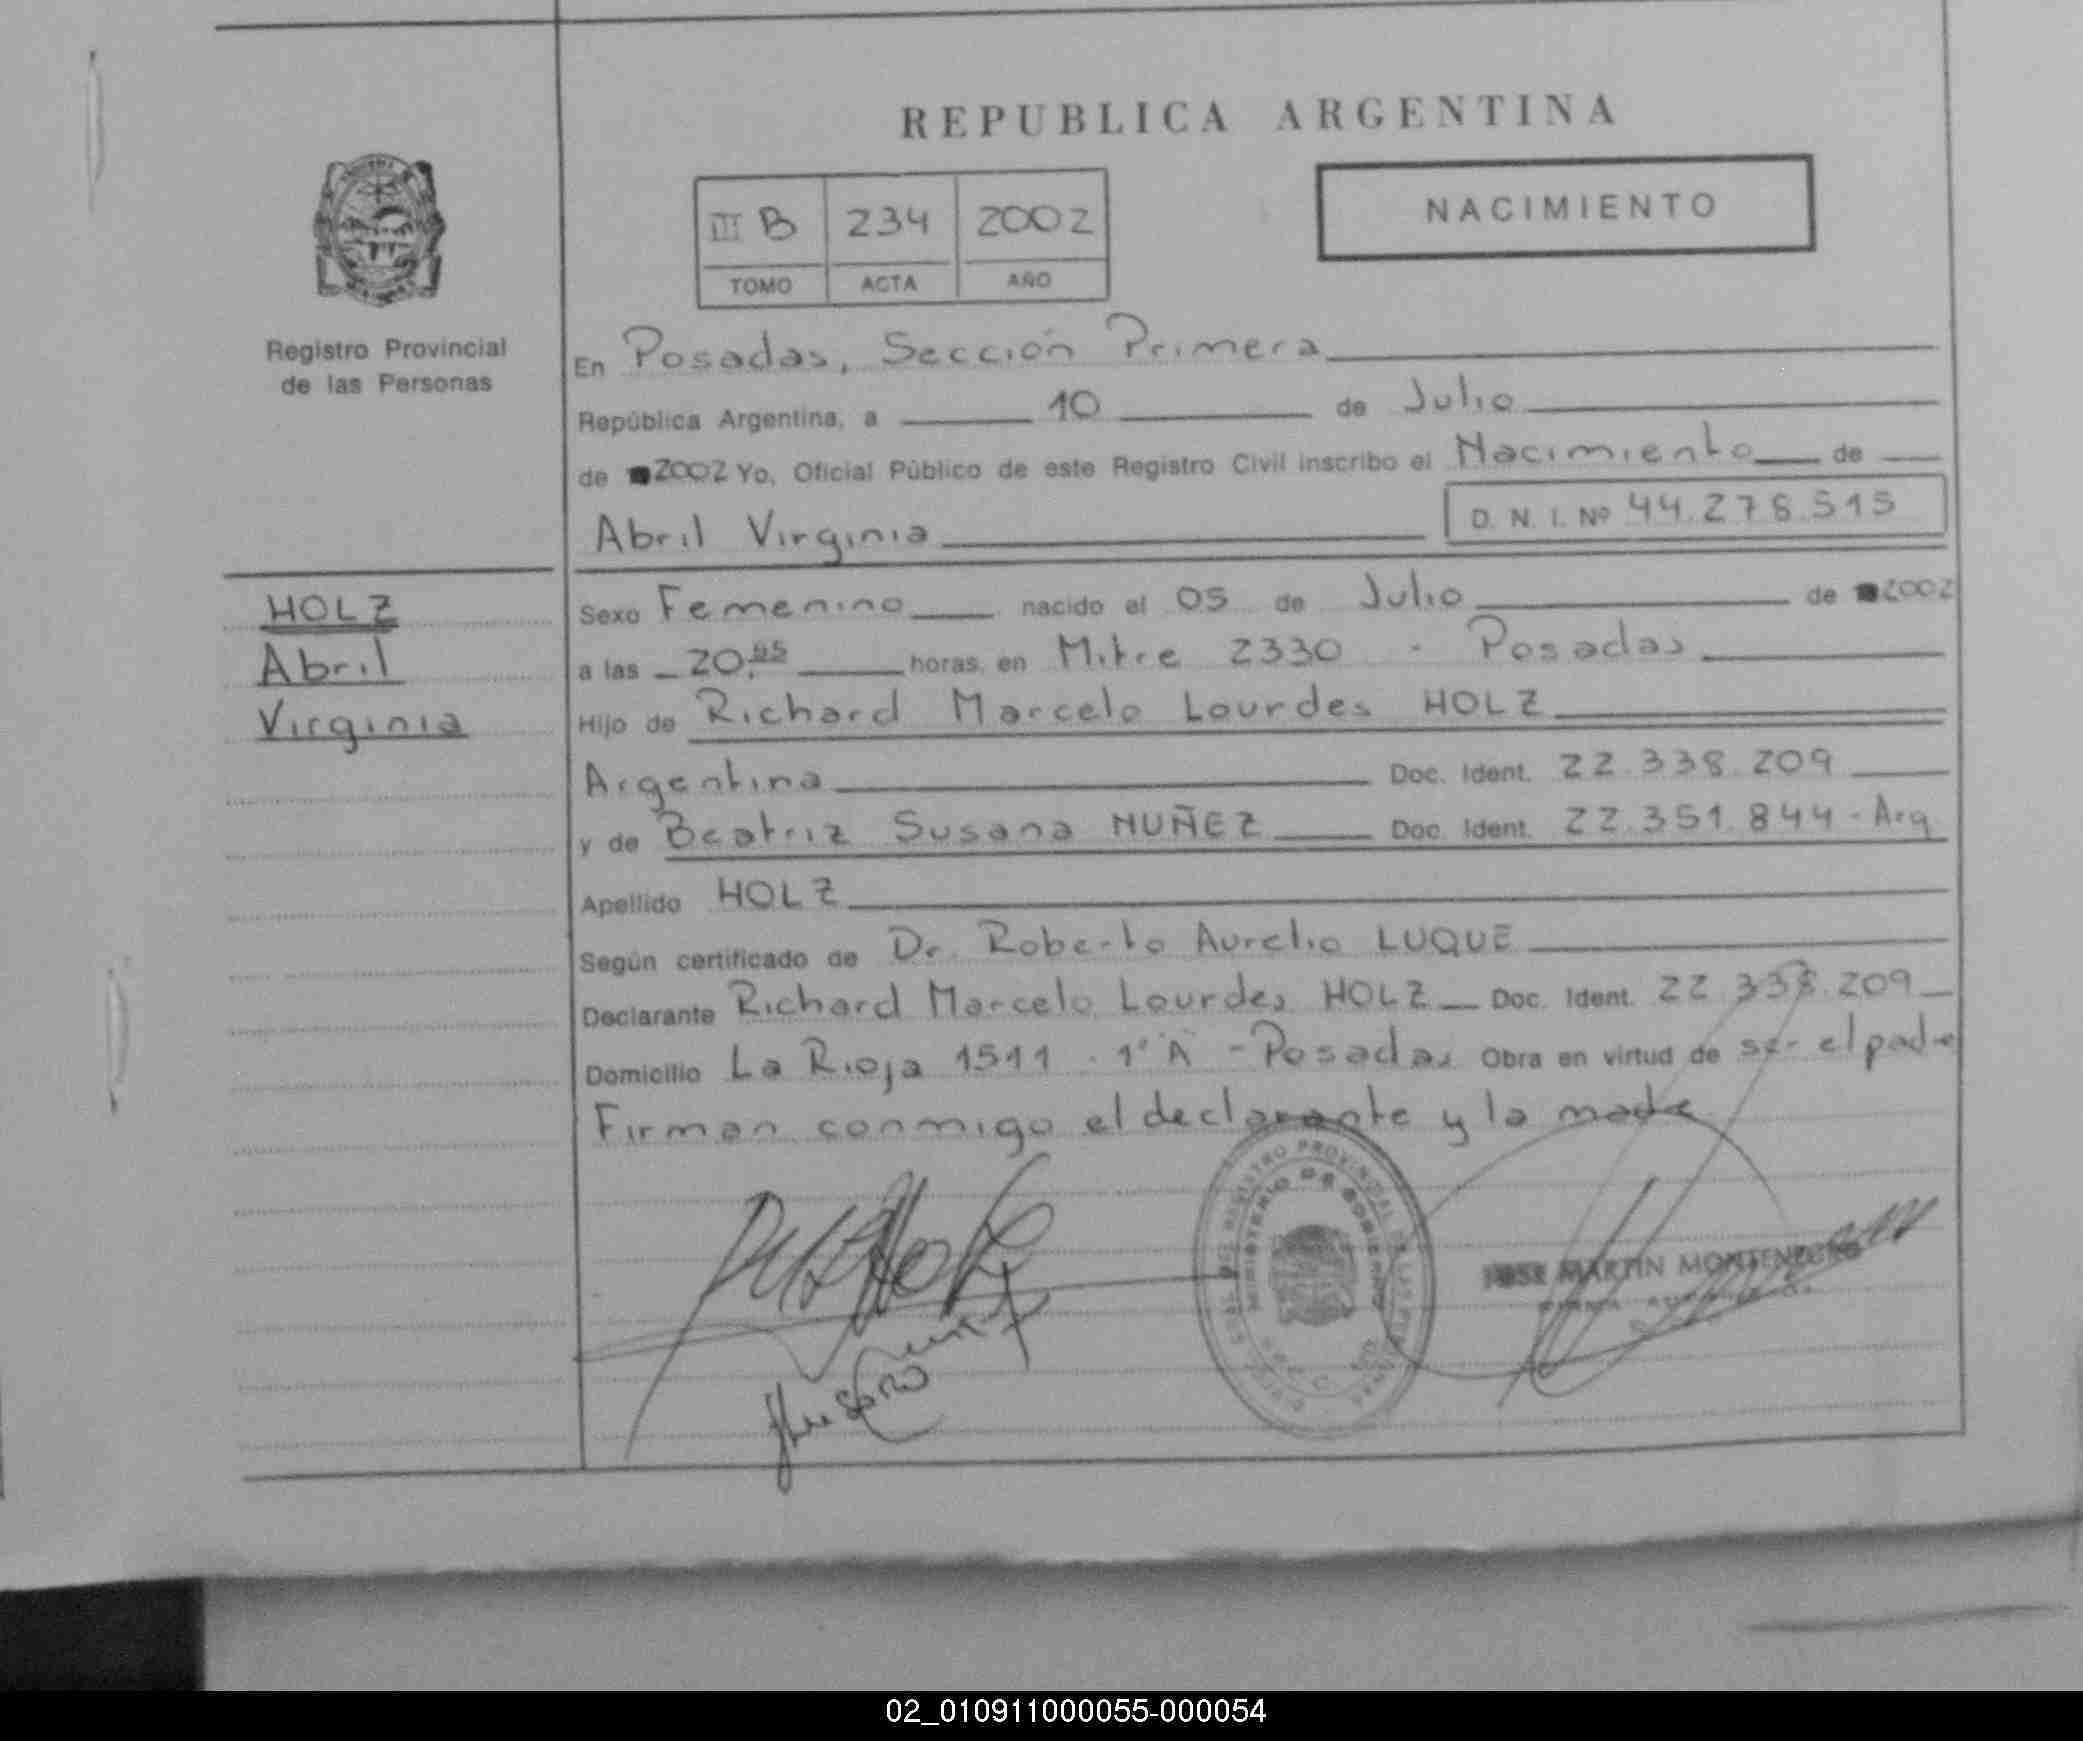 REPUBLICA ARGENTINA
III B 234 2002
TOMO ACTA AÑO
NACIMIENTO
Registro Provincial
de las Personas
En Posadas, Sección Primera
República Argentina, a 10 de Julio
de 2002 Yo, Oficial Público de este Registro Civil inscribo el Nacimiento de
Abril Virginia
D. N. I. Nº 44.278.515
HOLZ
Abril
Virginia
Sexo Femenino nacido el 05 de Julio de 2002
a las 20, horas, en Mitre 2330 - Posadas
Hijo de Richard Marcelo Lourdes HOLZ
Argentina Doc. Ident. 22.338.209
y de Beatriz Susana NUÑEZ Doc. Ident. 22.351.844 - Arg
Apellido HOLZ
Según certificado de Dr. Roberto Aurelio LUQUE
Declarante Richard Marcelo Lourdes HOLZ Doc. Ident. 22.338.209
Domicilio La Rioja 1511 - 1º A - Posadas Obra en virtud de ser el padre
Firman conmigo el declarante y la madre
REGISTRO PROVINCIAL DE LAS PERSONAS
MINISTERIO DE GOBIERNO
JOSE MARTIN MONTENEGRO
02_010911000055-000054